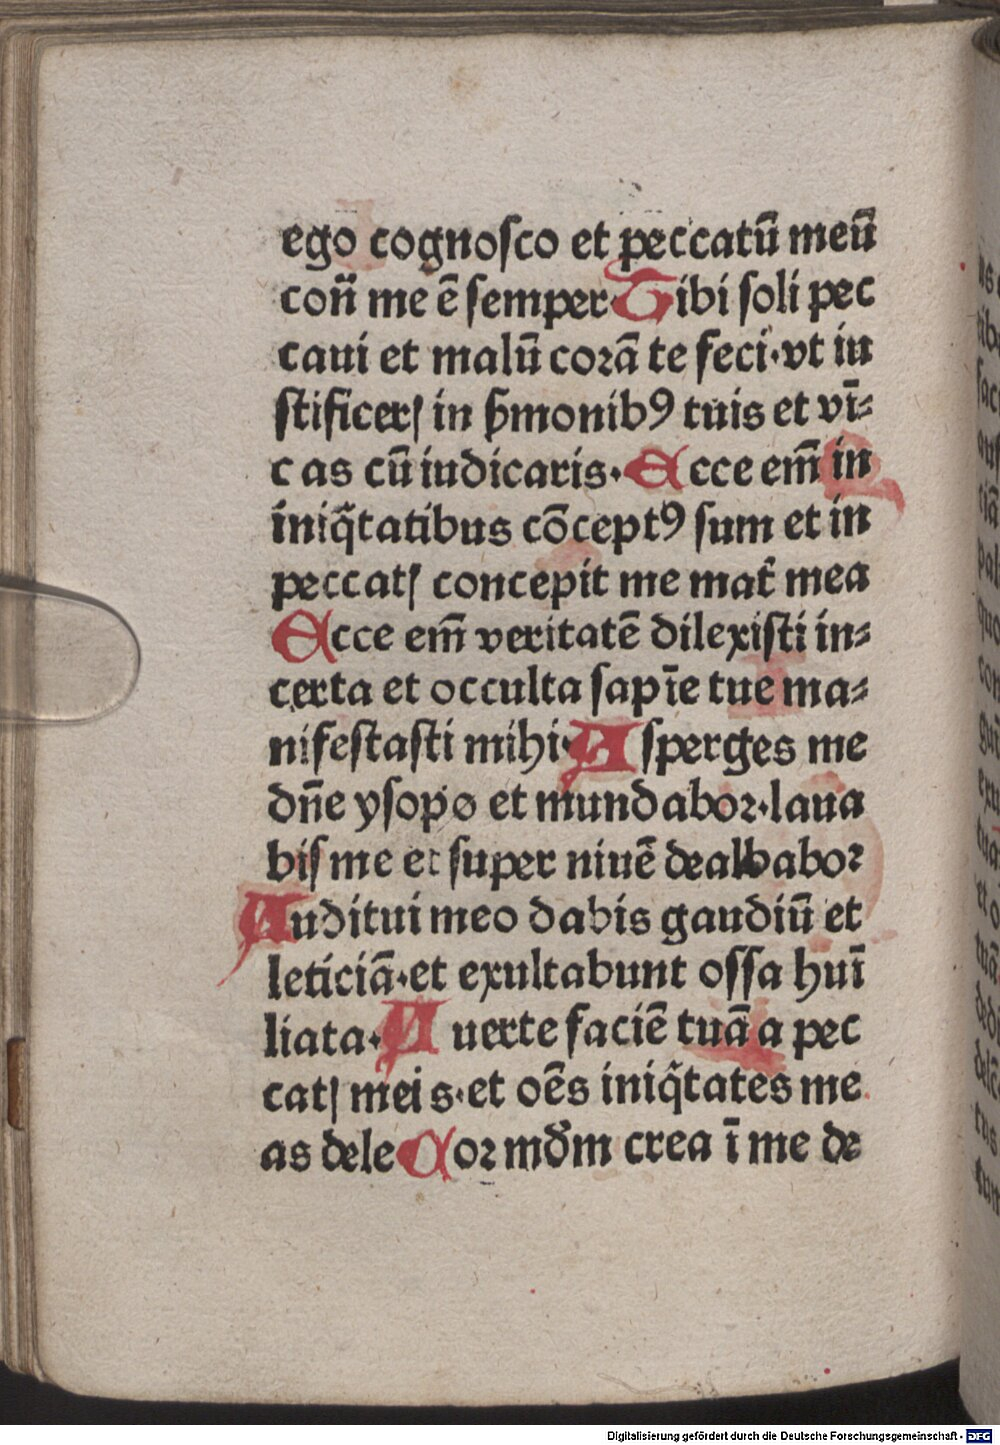 ego cognoſco et peccatū meū
con̄ me ē ſemper Tibi ſoli pec
caui et malū coꝛā te feci·vt iu
ſtificerꝭ in ẜmonibꝰ tuis et vī⸗
cas cū iudicaris· Ecce em̄ in
iniq̄tatibus cōceptꝰ ſum et in
peccatꝭ concepit me mat̄ mea
Ecce em̄ veritatē dilexiſti in⸗
certa et occulta ſapīe tue ma⸗
nifeſtaſti mihi· Aſperges me
dn̄e yſopo et mundaboꝛ·laua
biſ me et ſuper niuē dealbaboꝛ
Auditui meo dabis gaudiū et
leticiā·et exultabunt oſſa huī
liata· Auerte faciē tuā a pec
catꝭ meis·et oēs iniq̄tates me
as dele Coꝛ mūdm crea ī me de⸗
Digitalisierung gefördert durch die Deutsche Forschungsgemeinschaft - DFG